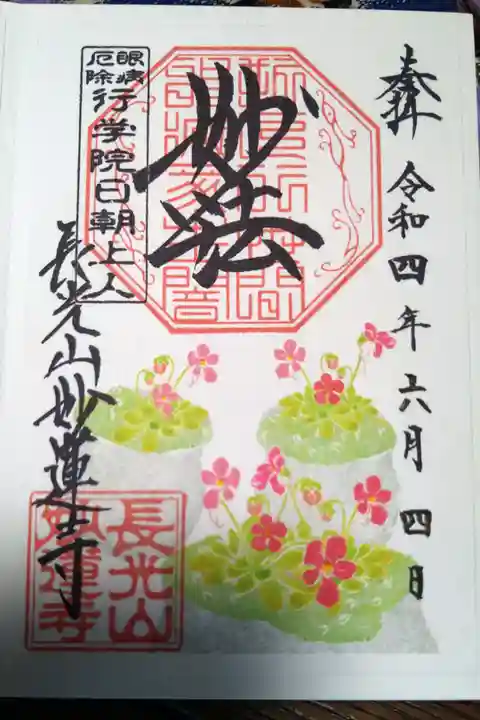 奉拝 令和四年六月四日
妙法
眼病
厄除
行学院日朝上人
長光山妙蓮寺
長光山
妙蓮寺